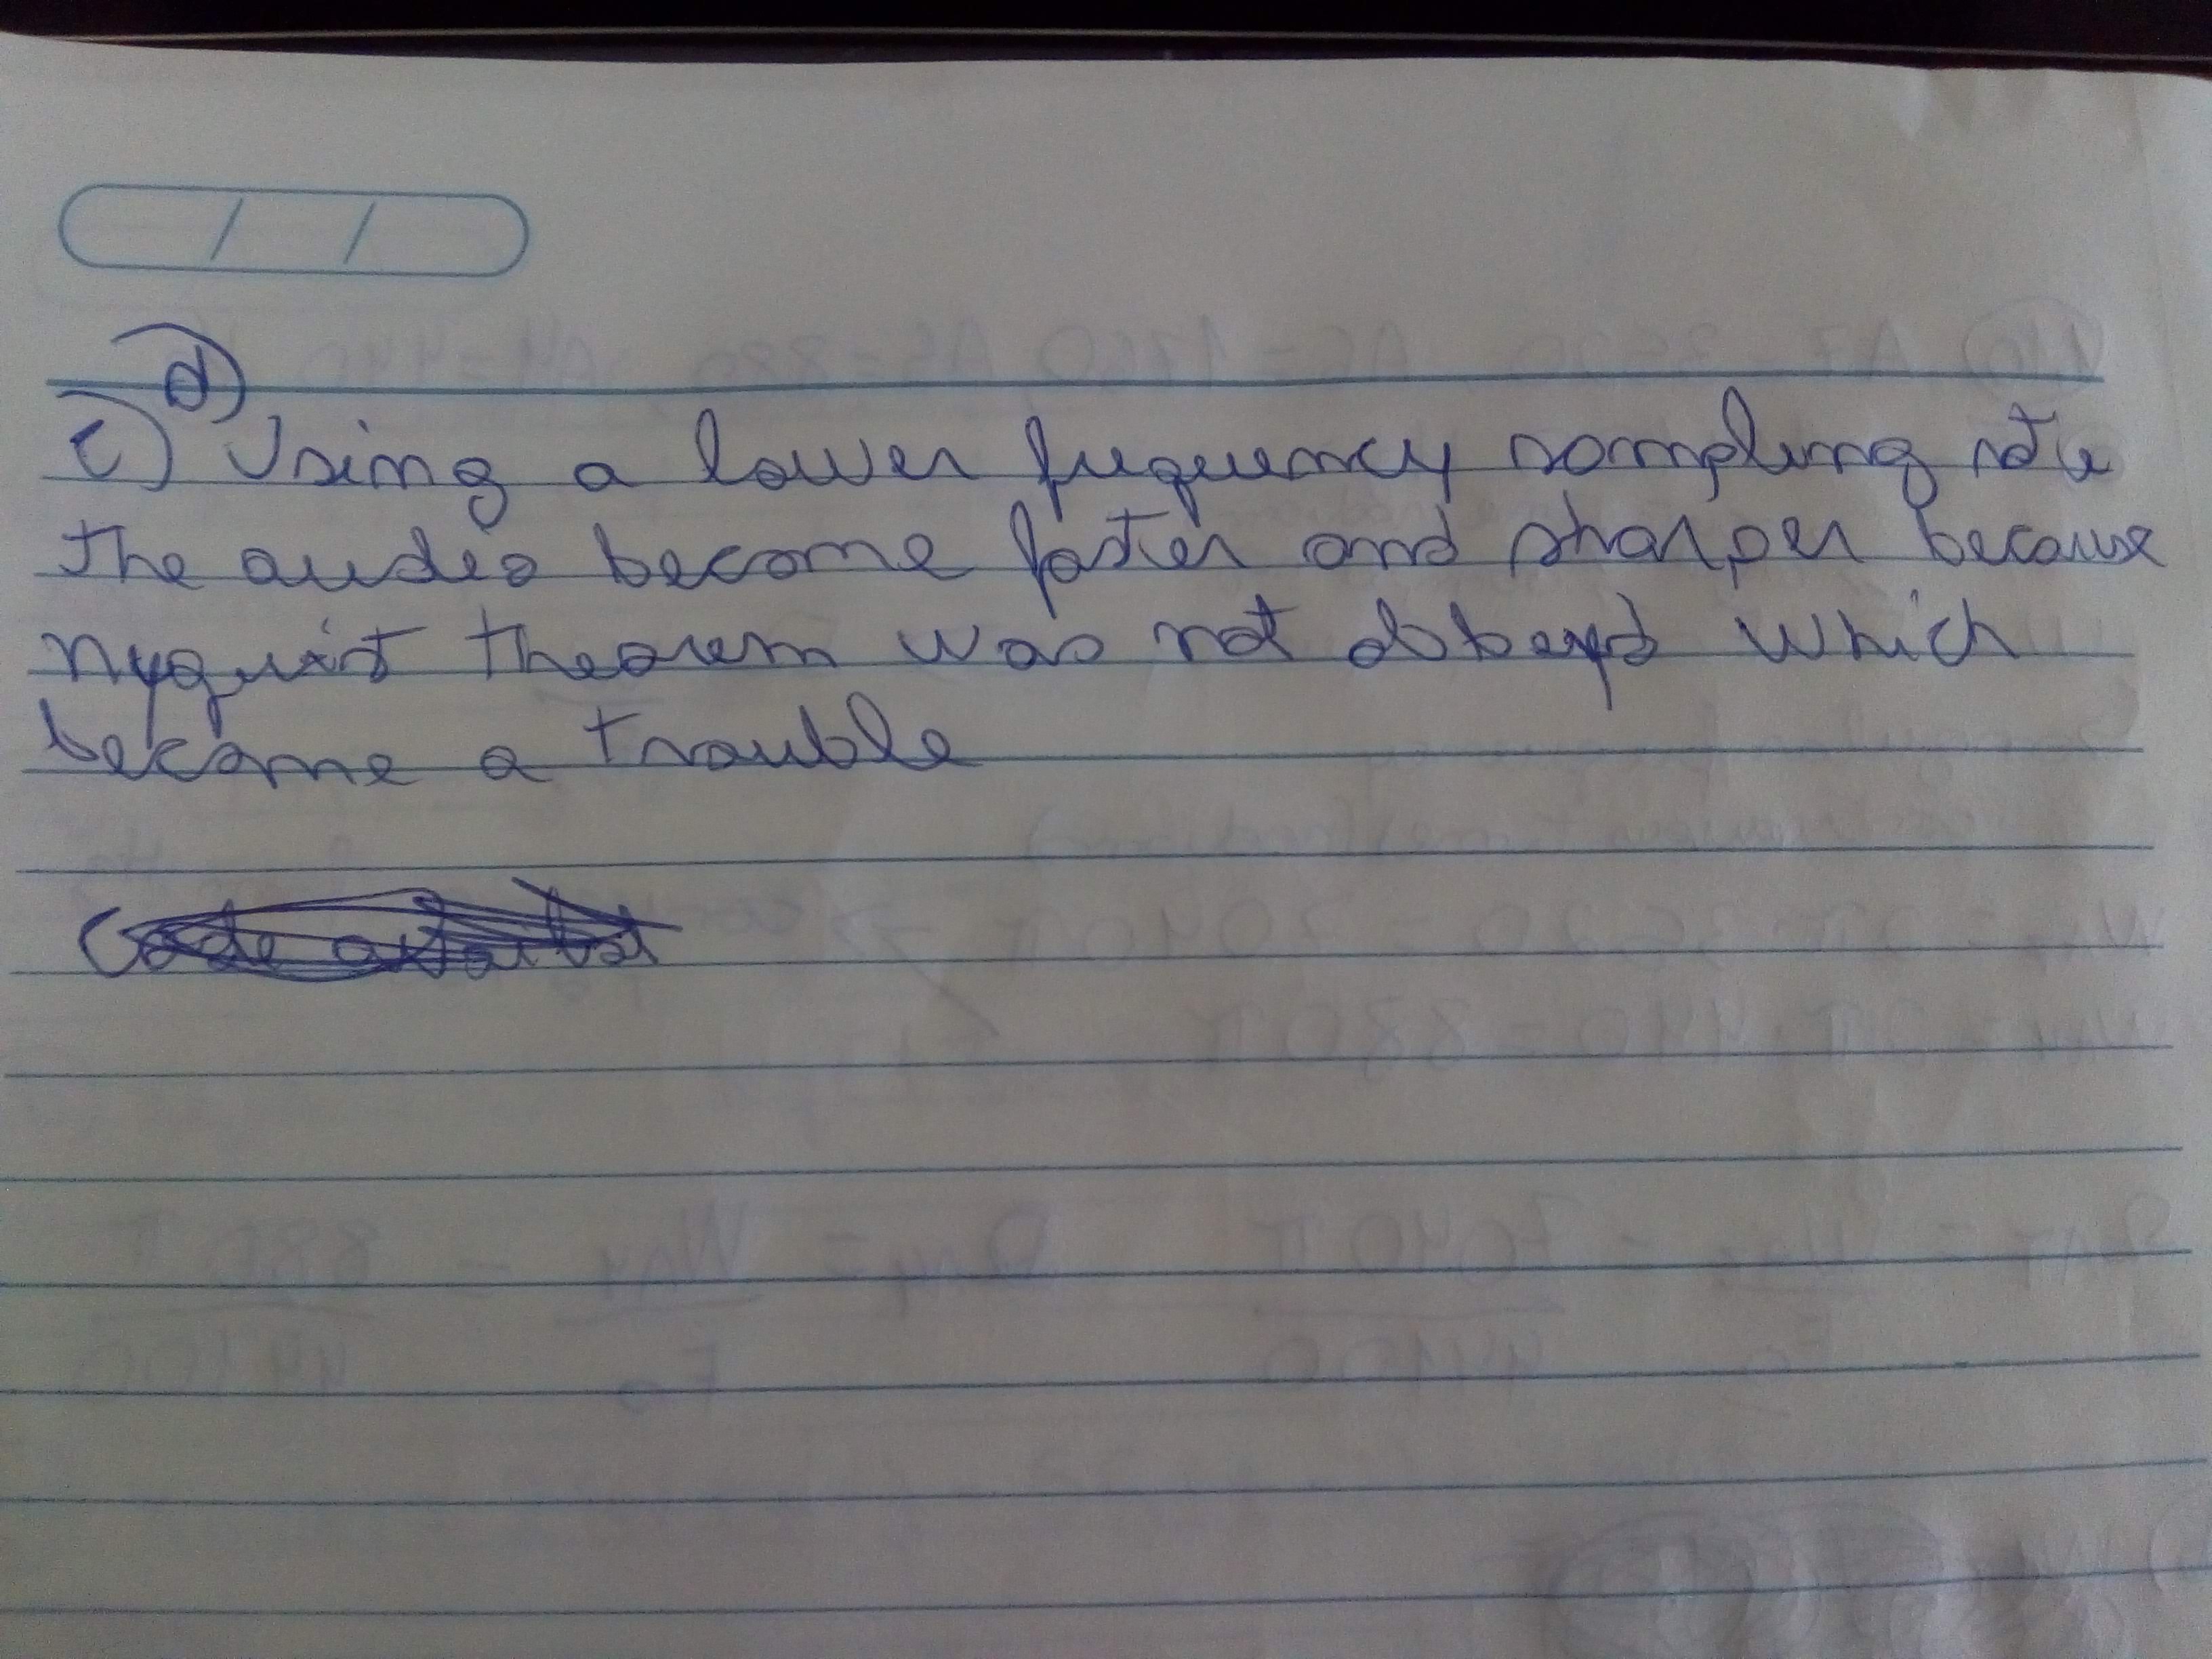 d)
c) Using a lower frequency sampling rate
the audio become faster and sharper because
nyquist theorem was not obbeyd which
became a trouble